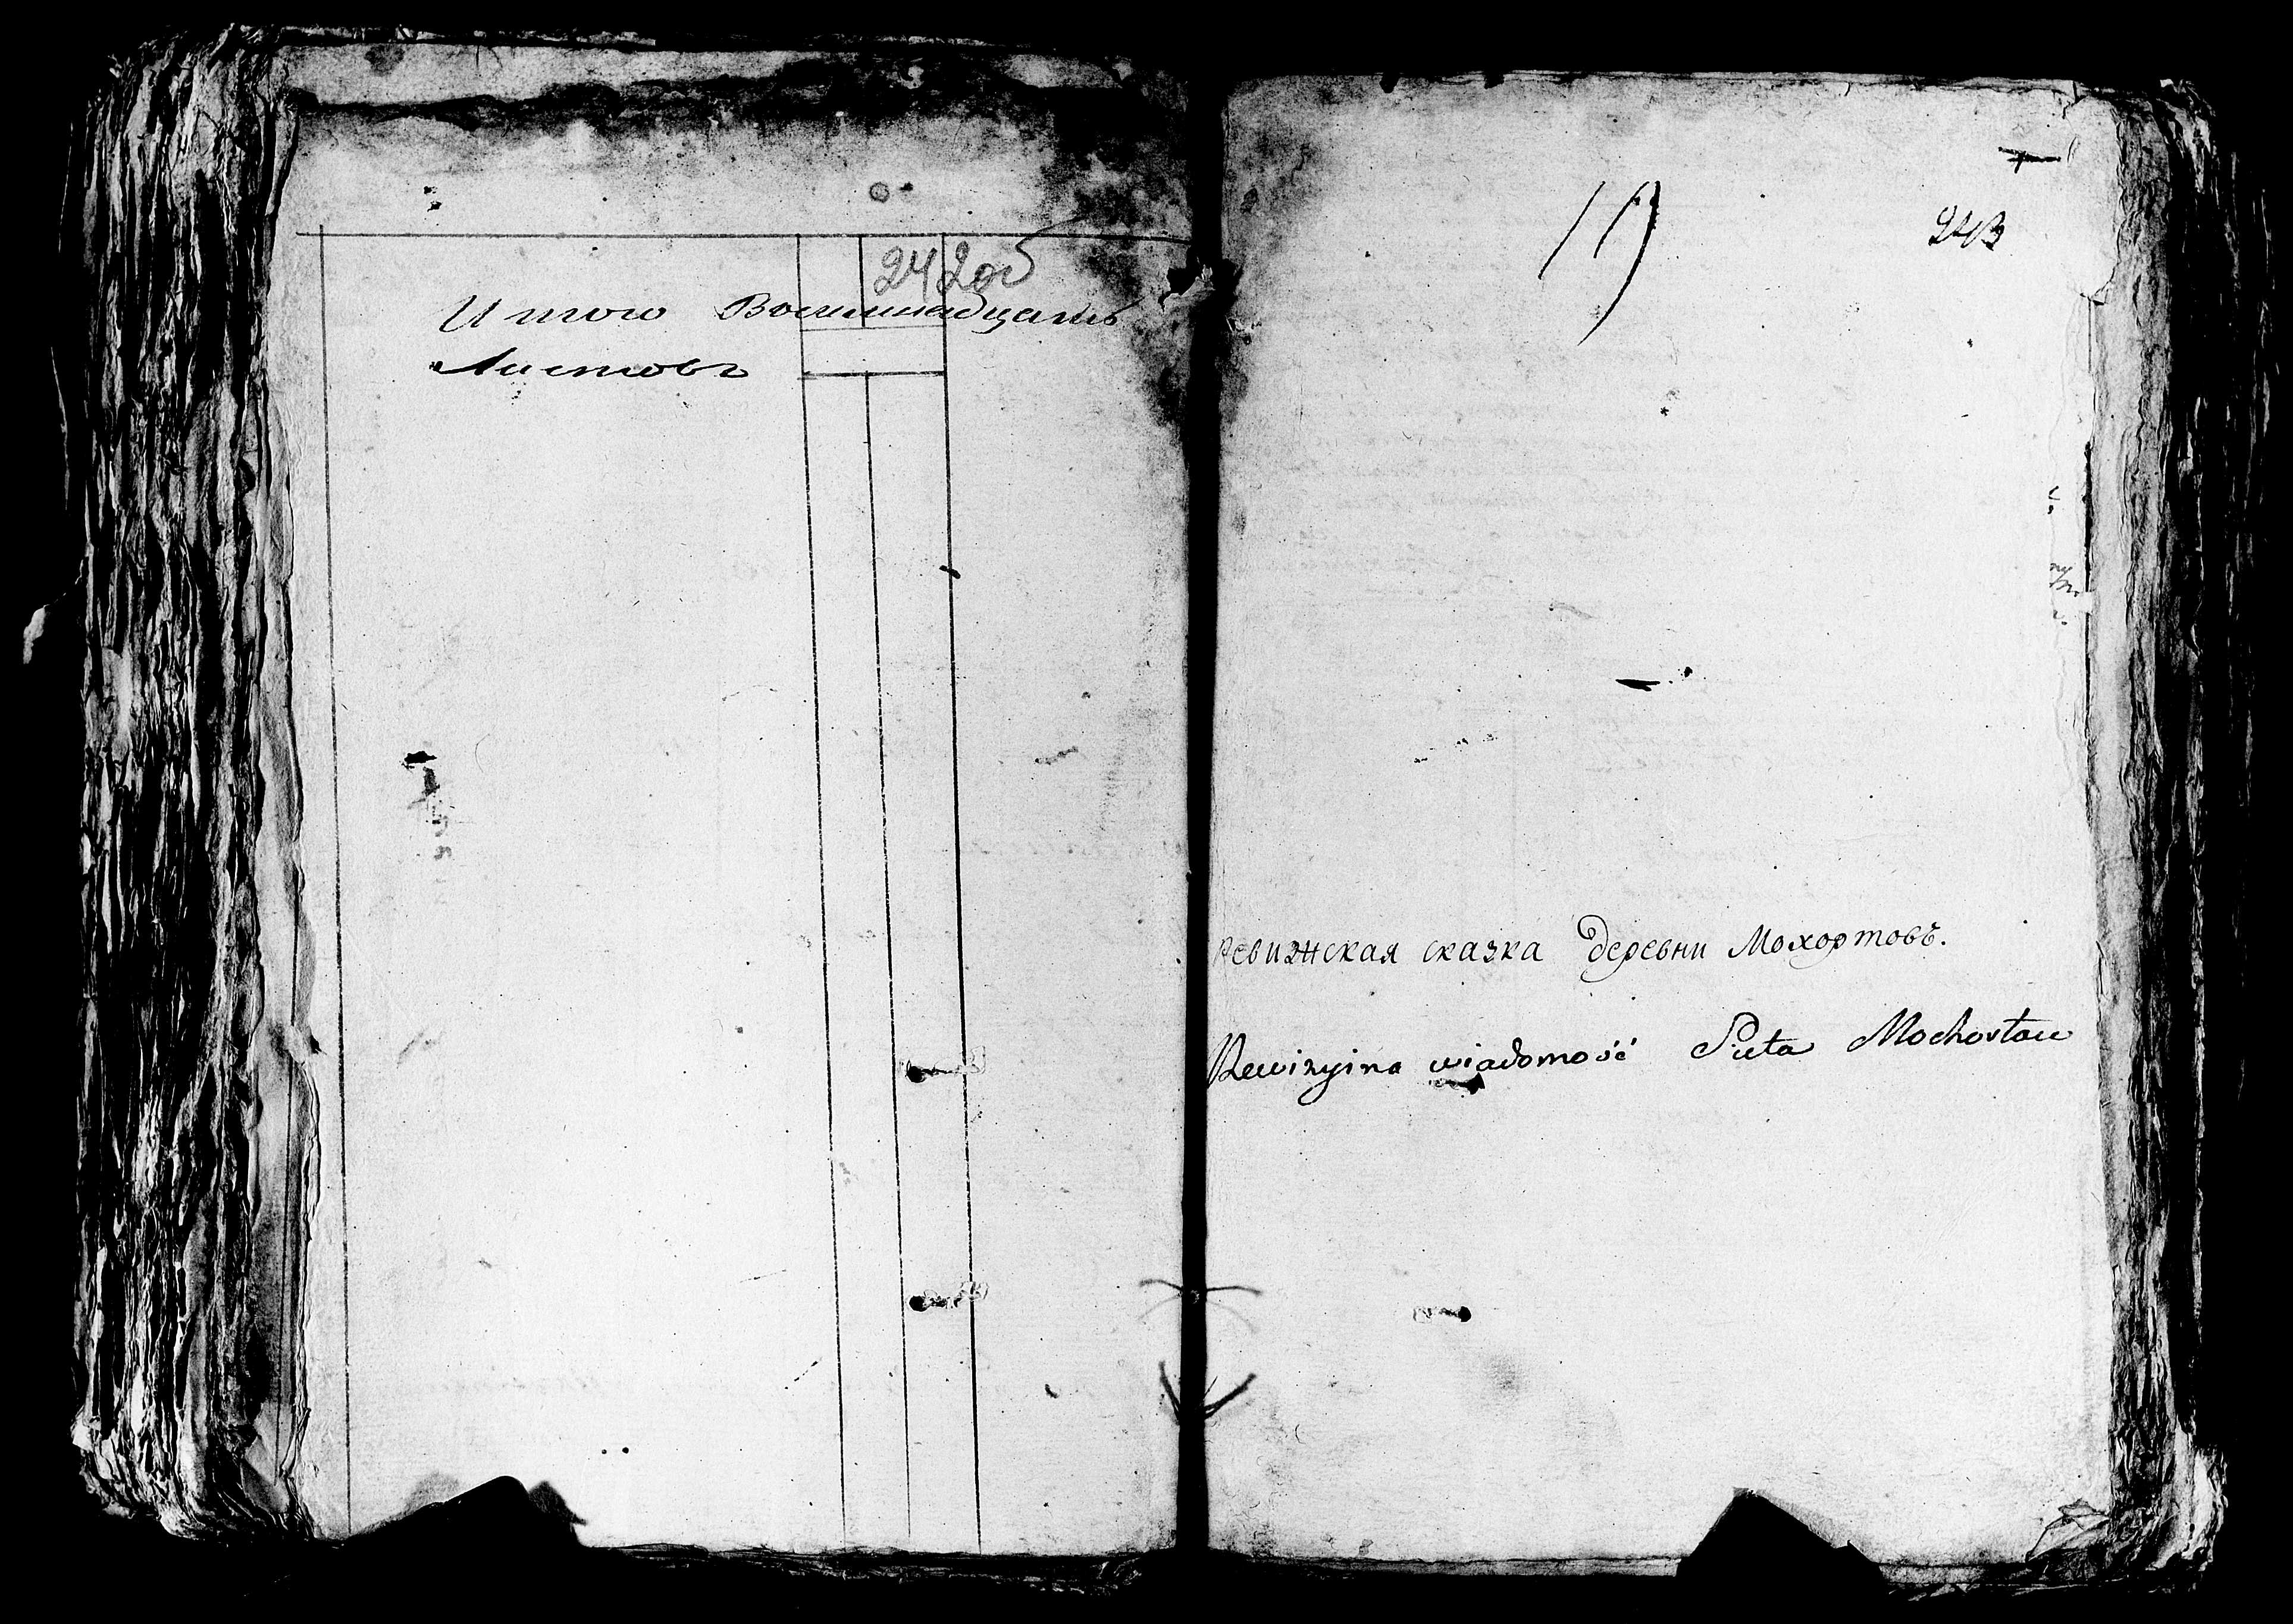 242об
Итого Восемнадцать
Листовъ
19
243
Ревизская сказка деревни Мохортовъ.
Rewizyina wiadomość Sieła Mochortow